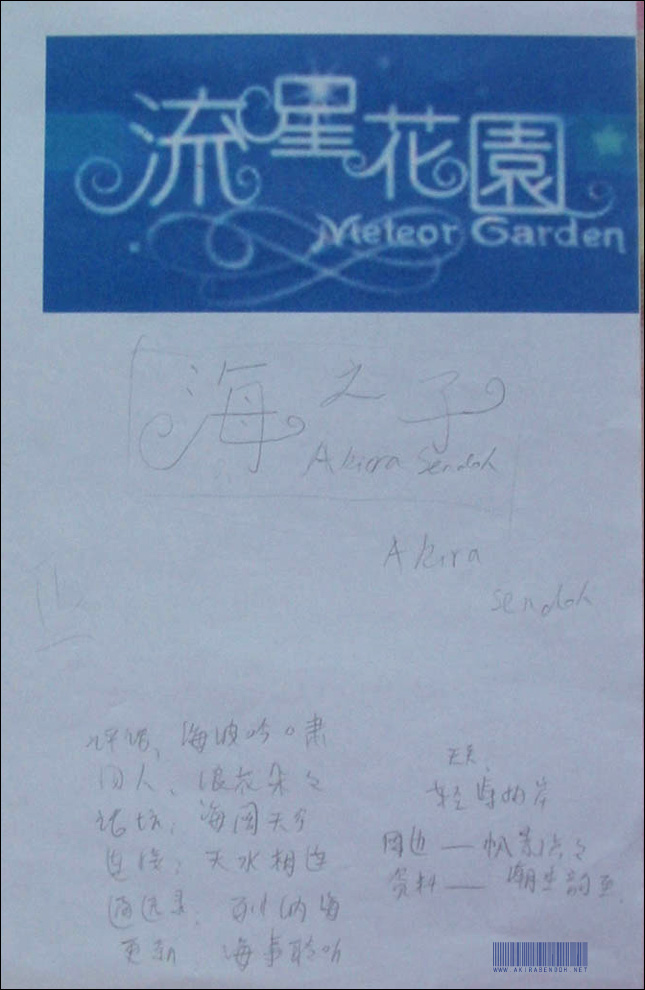 流星花園
Meteor Garden
海之子
Akira Sendoh
Akira
Sendoh
评论、海波吟啸
同人、浪花朵々
论坛：海阔天空
连接：天水相连
通迅录：百川纳海
更新：海事聆听
关于：
轻舟两岸
周边 — 帆影点々
资料 — 潮生韵至
WWW.AKIRASENDOH.NET